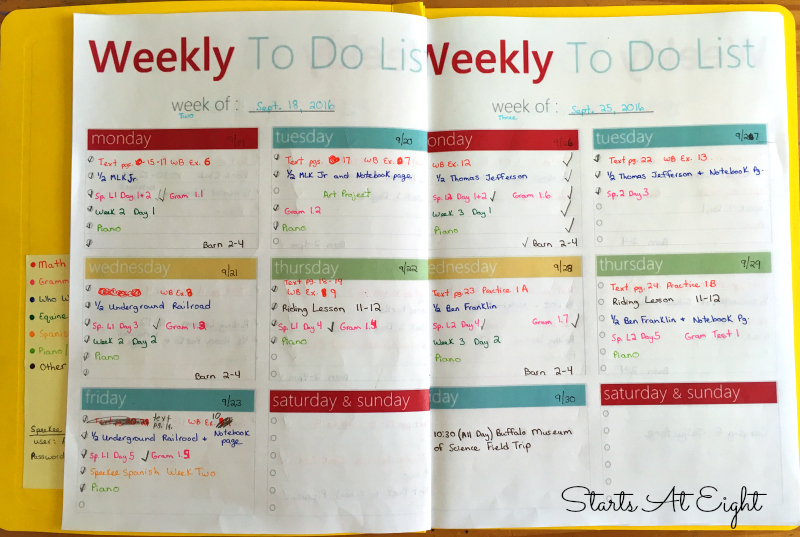 Weekly To Do Lis
week of : Sept. 18, 2016
Two
monday
Text pgs. 15-17 WB Ex. 6
1/2 MLK Jr
Sp. L1 Day 1+2 Gram 1.1
Week 2 Day 1
Piano
Barn 2-4
tuesday 9/20
Text pgs. 17 WB Ex. 7
1/2 MLK Jr and Notebook page
Art Project
Gram 1.2
Piano
wednesday 9/21
WB Ex. 8
1/2 Underground Railroad
Sp. L1 Day 3 Gram 1.3
Week 2 Day 2
Piano
Barn 2-4
thursday 9/22
Text pg. 18-19
WB Ex. 9
Riding Lesson 11-12
Sp. L1 Day 4 Gram 1.4
Piano
friday 9/23
text WB Ex 10
1/2 Underground Railroad + Notebook
page
Sp. L1 Day 5 Gram 1.5
Speekee Spanish Week Two
Piano
saturday & sunday
Math
Gramm
Who W
Equine
Spanis
Piano
Other
Speekee
user:
Password
Weekly To Do List
week of : Sept. 25, 2016
Three
monday
WB Ex. 12
1/2 Thomas Jefferson
Sp. L2 Day 1+2 Gram 1.6
Week 3 Day 1
Piano
Barn 2-4
tuesday 9/27
Text pg. 22 WB Ex. 13
1/2 Thomas Jefferson + Notebook Pg.
Sp. 2 Day 3
ednesday 9/28
Text pg. 23 Practice 1A
1/2 Ben Franklin
Sp. L2 Day 4 Gram 1.7
Week 3 Day 2
Piano
Barn 2-4
thursday 9/29
Text pg. 24 Practice 1B
Riding Lesson 11-12
1/2 Ben Franklin + Notebook Pg.
Sp L2 Day 5 Gram Test 1
Piano
day 9/30
10:30 (All Day) Buffalo Museum
of Science Field Trip
saturday & sunday
Starts At Eight